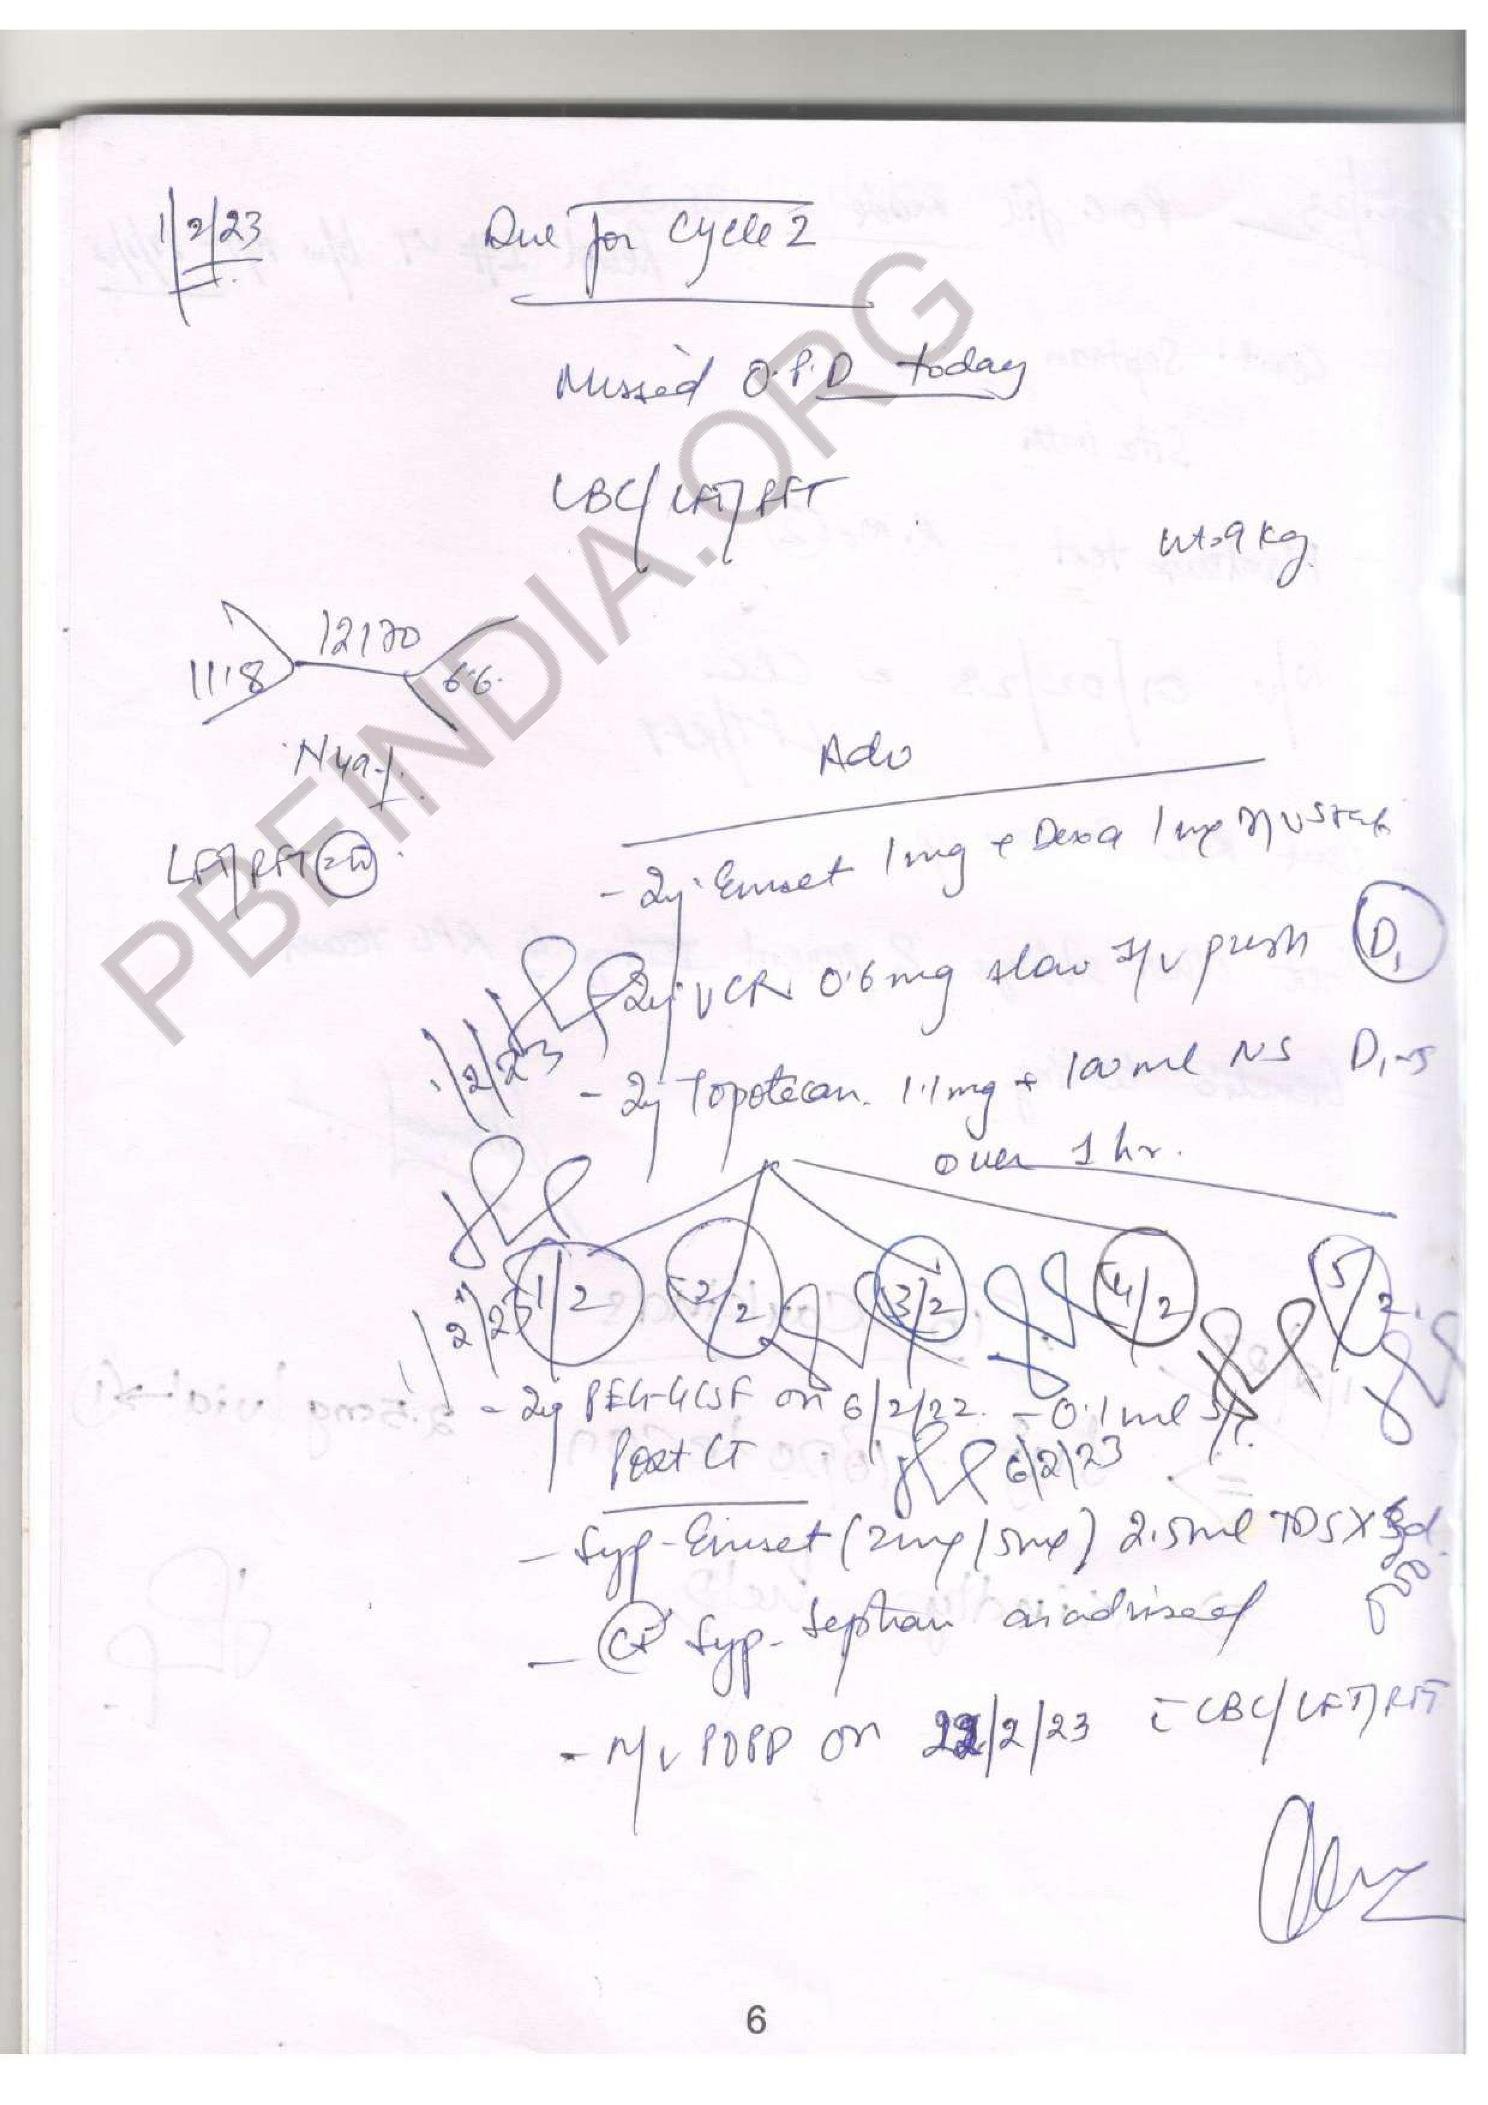 1/2/23
Due for Cycle 2
Missed O.P.D today
CBC/LFT/RFT
Wt-9 kg
11.8 12170 6.6
N49%
LFT/RFT = N
Adv
- Inj Emset 1mg + Dexa 1mg I/V stat
- Inj VCR 0.6mg slow I/V push D1
1/2/23
- Inj Topotecan 1.1mg + 100ml NS D1-5
over 1 hr.
1/2 2/2 3/2 4/2 5/2
1/2/23
- Inj PEG-GCSF on 6/2/22 - 0.1ml S/C
Post CT 6/2/23
- Syp-Emset (2mg/5ml) 2.5ml TDS X 5d
- CT Syp- Septran as advised
- N/V POPD on 22/2/23 c CBC/LFT/RFT
6
PBEINDIA.ORG